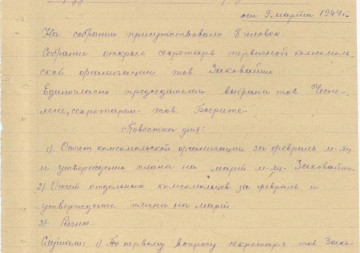 от 9 марта 1949 г.
На собрании присутствовало 8 человек
Собрание открыл секретарь первичной комсомоль-
ской организации тов.
Единогласно председателем выбрана тов.
секретарем тов.
Повестка дня:
1) Отчет комсомольской организации за февраль м-ц
и утверждение плана на март м-ц.
2) Отчет отдельных комсомольцев за февраль и
утверждение плана на март.
3) Разное.
Слушали: 1) По первому вопросу секретарь тов.